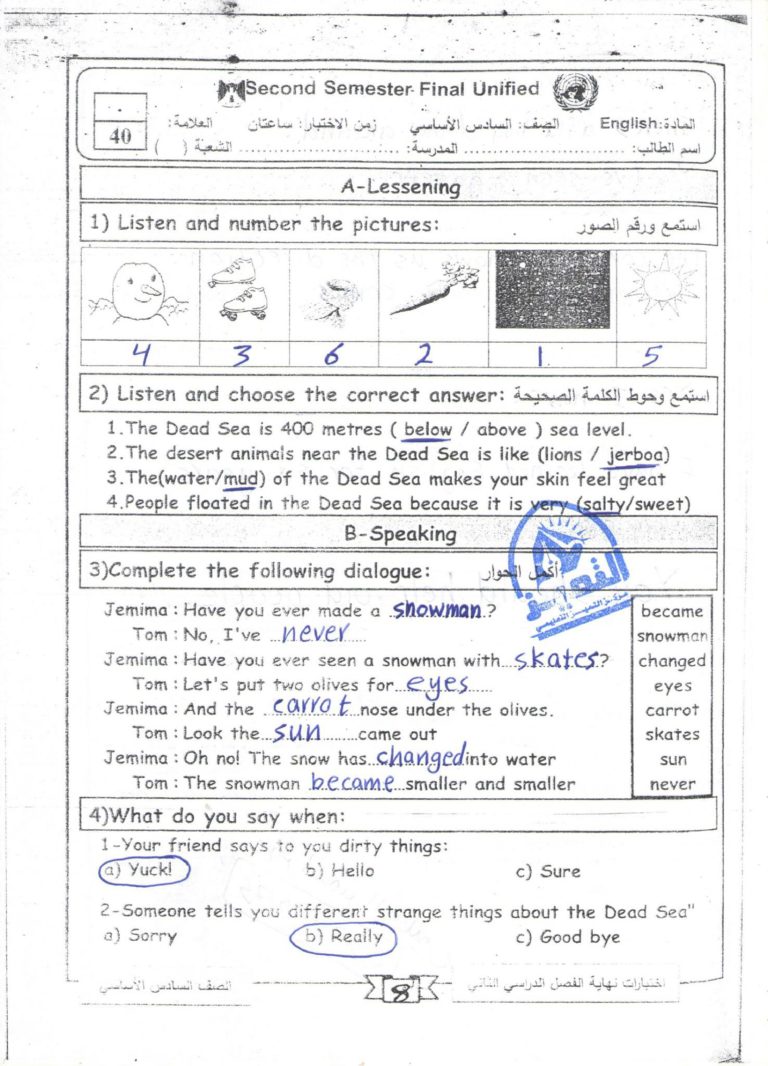 Second Semester Final Unified
المادة: English الصف: السادس الأساسي زمن الاختبار: ساعتان العلامة:
40
اسم الطالب: ............................ المدرسة: ............................ الشعبة ( )
A-Lessening
1) Listen and number the pictures: استمع ورقم الصور
4 3 6 2 1 5
2) Listen and choose the correct answer: استمع وحوط الكلمة الصحيحة
1.The Dead Sea is 400 metres ( below / above ) sea level.
2.The desert animals near the Dead Sea is like (lions / jerboa)
3.The(water/mud) of the Dead Sea makes your skin feel great
4.People floated in the Dead Sea because it is very (salty/sweet)
B-Speaking
3)Complete the following dialogue: أكمل الحوار
Jemima : Have you ever made a snowman ?
Tom : No, I've never
Jemima : Have you ever seen a snowman with skates ?
Tom : Let's put two olives for eyes
Jemima : And the carrot nose under the olives.
Tom : Look the sun came out
Jemima : Oh no! The snow has changed into water
Tom : The snowman became smaller and smaller
became
snowman
changed
eyes
carrot
skates
sun
never
4)What do you say when:
1-Your friend says to you dirty things:
a) Yuck! b) Hello c) Sure
2-Someone tells you different strange things about the Dead Sea"
a) Sorry b) Really c) Good bye
اختبارات نهاية الفصل الدراسي الثاني 8 الصف السادس الأساسي